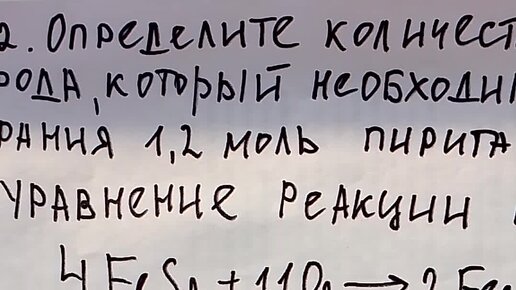 2. Определите количест
рода, который необходи
рания 1,2 моль пирита
уравнение реакции
4FeS₂ + 11O₂ → 2Fe